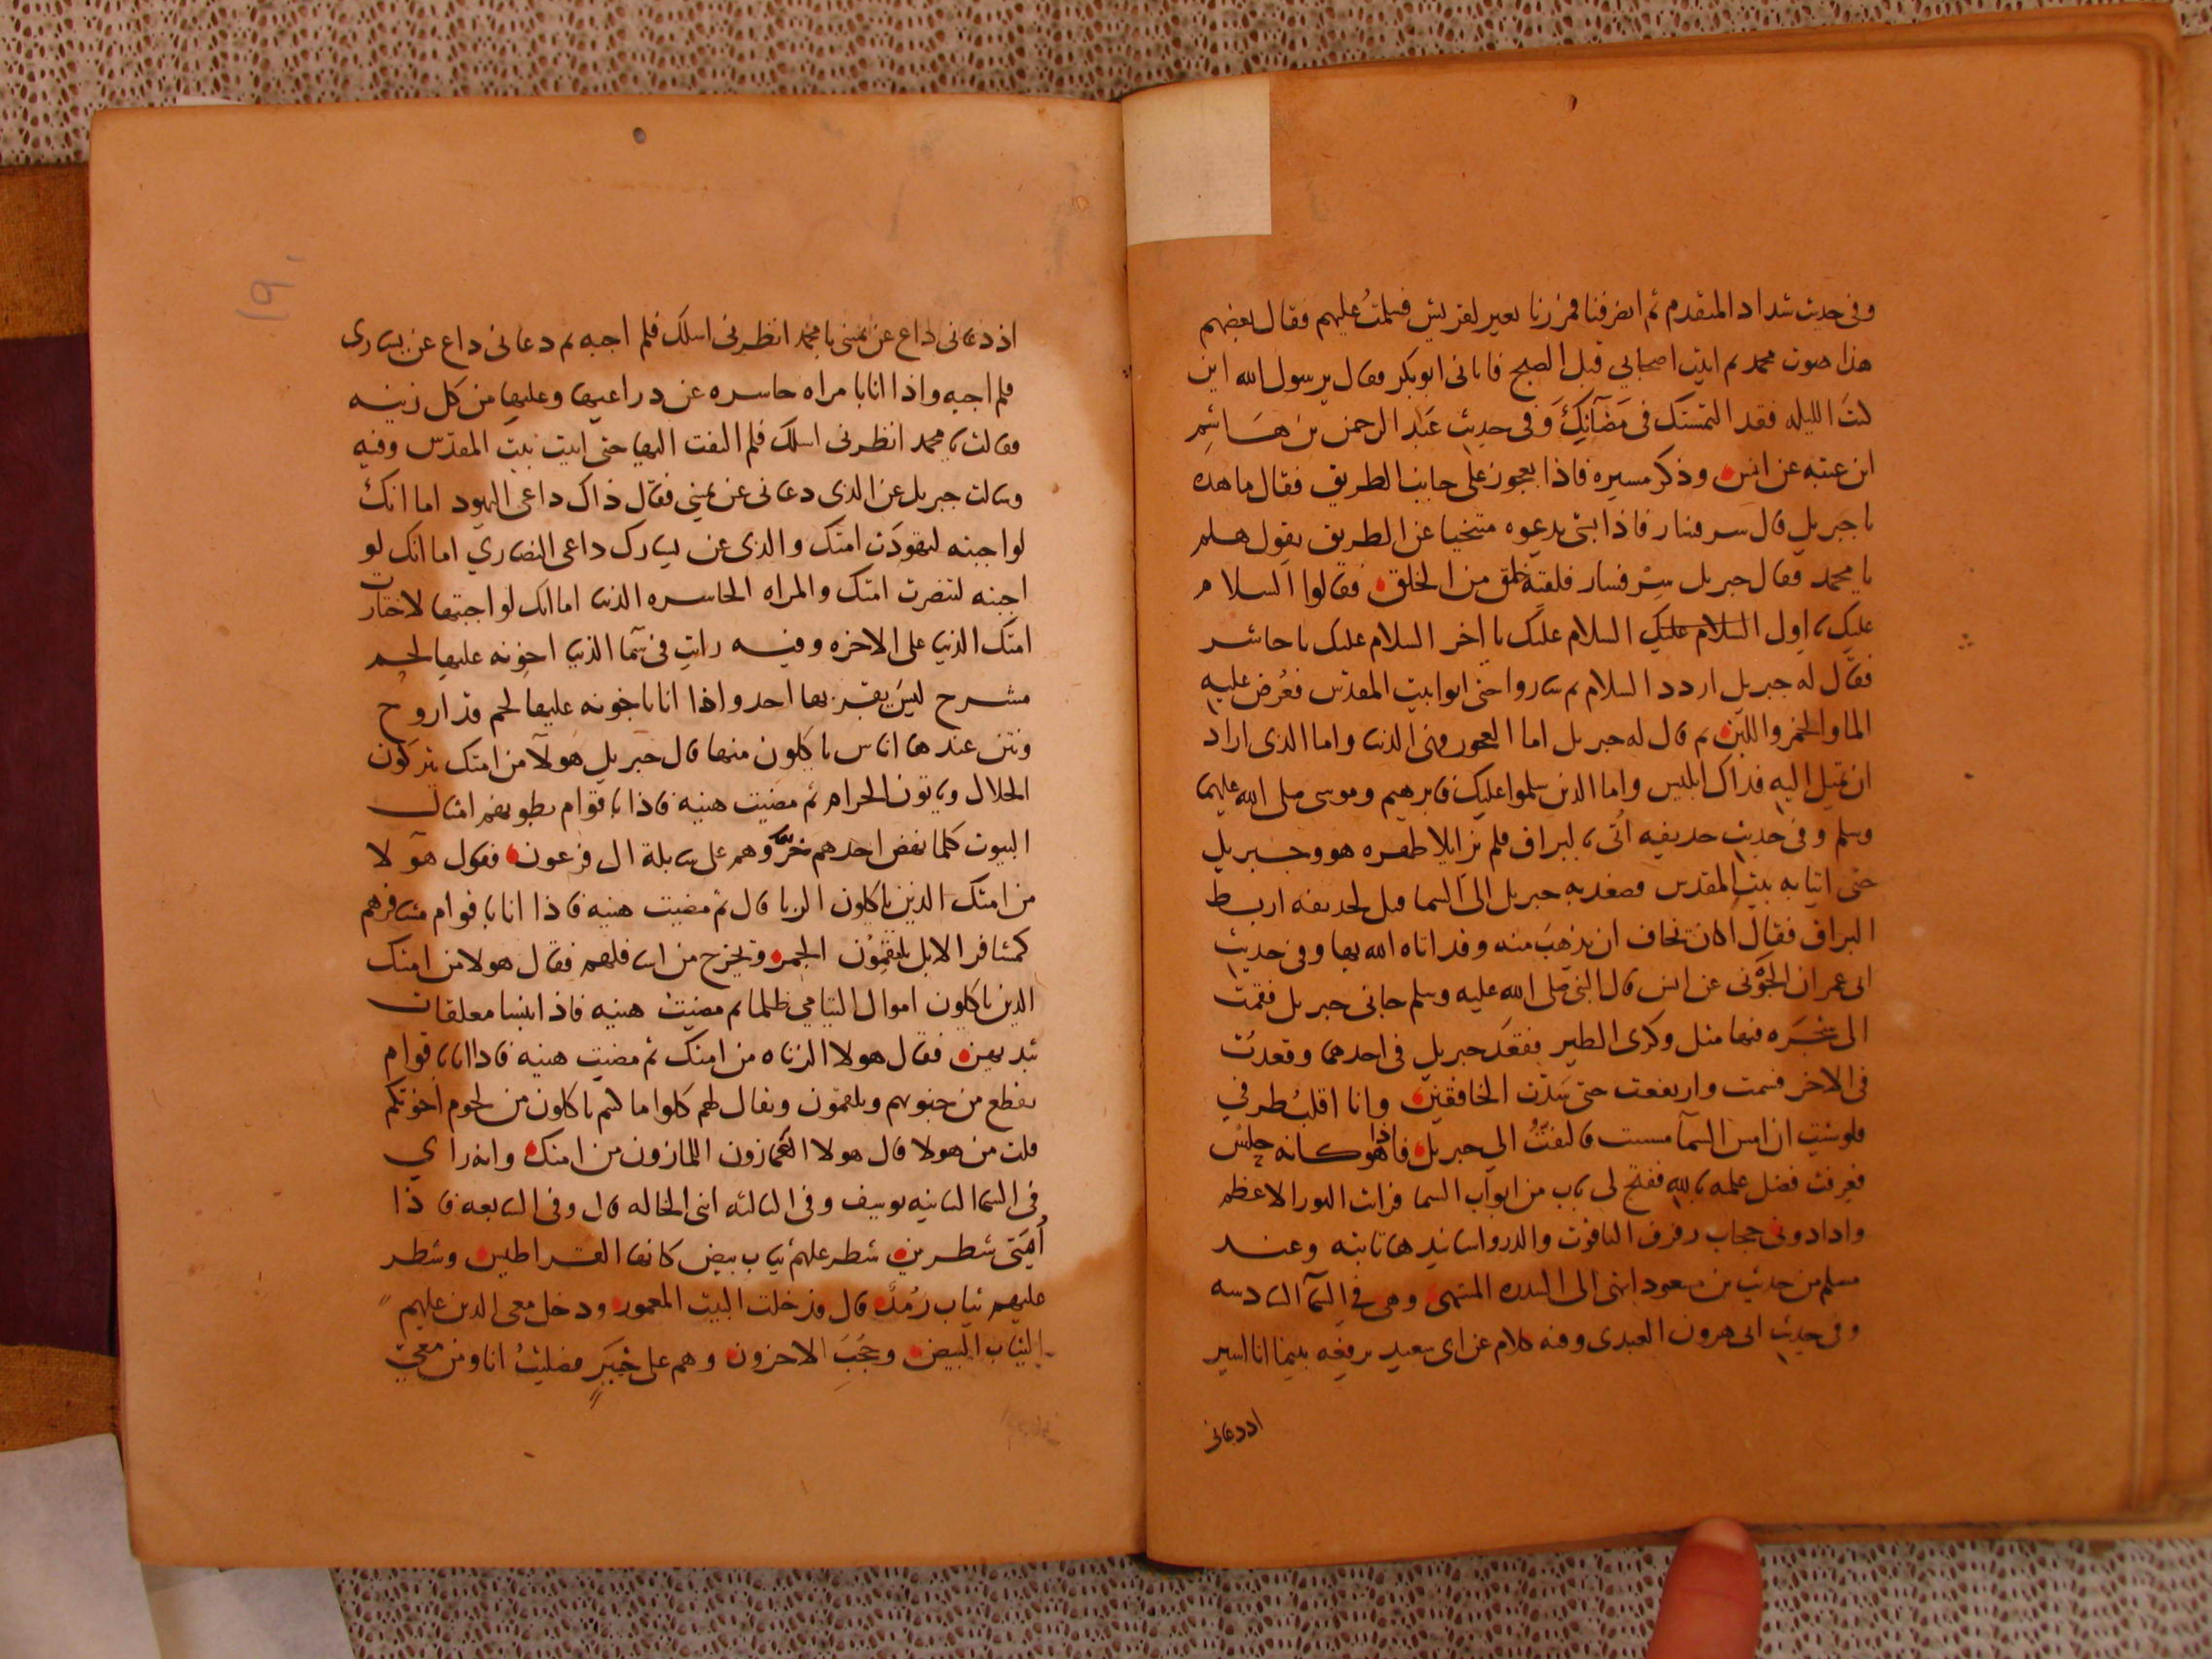 وفى حديث شداد المتقدم ثم انصرفنا فمررنا بعير لقريش فسلمتُ عليهم فقال بعضهم
هذا صوت محمد ثم اتيت اصحابي قبل الصبح فاتانى ابو بكر فقال يرسول الله اين
كنتَ الليله فقد التمستك فى مَضَانِّكَ وفى حديث عَبد الرحمن بن هَاشِم
ابن عتبه عن انس وذكر مسيره فاذا بعجوز على جانب الطريق فقال ما هذه
يا جبريل قال سر فسار فاذا بشى يدعوه متنحيا عن الطريق يقول هلم
يا محمد فقال جبريل سِرْ فسار فلقيَهُ خلق من الخلق فقالوا السلام
عليك يا اول السلام عليك السلام عليك يا اخر السلام عليك يا حاشر
فقال له جبريل اردد السلام ثم ساروا حتى اتوا بيت المقدس فعُرض عليه
الما والخمر واللبن ثم قال له جبريل اما العجوز فهى الدنيا واما الذى اراد
ان تميل اليه فذاك ابليس واما الذين سلموا عليك فابرهيم وموسى صلى الله عليهما
وسلم وفى حديث حذيفه اُتى بالبراق فلم يزايلا ظهره هو وجبريل
حتى اتيا به بيت المقدس فصعد به جبريل الى السما قيل لحذيفه اربط
البراق فقال اكان يخاف ان يذهبَ منه وقد اتاه الله بها وفى حديث
ابى عمران الجَوْنى عن انس قال النبى صلى الله عليه وسلم جانى جبريل فقمت
الى شجَرَه فيها مثل وكرى الطير فقعَد جبريل فى احدهما وقعدتُ
فى الاخر فسمت وارتفعت حتى سَدَّت الخافقين وانا اقلبُ طرفي
فلو شيت ان امس السمآ مسست فالتفتُّ الى جبريل فاذا هو كانه حِلسٌ
فعرفت فضل علمه بالله ففتح لى باب من ابواب السما فرات النور الاعظم
واذا دونى حجاب رفرف الياقوت والدر واسانيدها ثابته وعند
مسلم من حديث بن مسعود انتهى الى السدره المنتهى وهى فى السمآ السادسه
وفى حديث ابى هرون العبدى وفيه كلام عن ابى سعيد يرفعه بينما انا اسير
اذ دعانى
اذ دعانى داع عن يمينى يا محمد انظرنى اسلك فلم اجبه ثم دعانى داع عن يسارى
فلم اجبه واذا انا بامراه حاسره عن ذراعيها وعليها من كل زينه
فقالت يا محمد انظرنى اسلك فلم التفت اليها حتى اتيت بيت المقدس وفيه
وسالت جبريل عن الذى دعانى عن يمينى فقال ذاك داعى اليهود اما انكَ
لو اجبته لتهوَّدَت امتك والذى عن يسارك داعى النصارى اما انك لو
اجبته لتنصرت امتك والمراه الحاسره الدنيا اما انك لو اجبتها لاختارت
امتك الدنيا على الاخره وفيه رايت فى سَمآ الدنيا اخونه عليها لحم
مشرح ليسَ يقربها احد واذا انا باخونه عليها لحم قد اروح
ونتن عندها اناس ياكلون منها قال جبريل هولآ من امتك يتركون
الحلال وياتون الحرام ثم مضيت هنيه فاذا باقوام بطونهم امثال
البيوت كلما نهض احدهم خرَّ وهم على سابلة ال فرعون فقال هولا
من امتك الذين ياكلون الربا قال ثم مضيت هنيه فاذا انا باقوام مشافرهم
كمشافر الابل يلتقمُون الجمر ويخرج من اسافلهم فقال هولا من امتك
الذين ياكلون اموال اليتامى ظلما ثم مضيت هنيه فاذا بنسا معلقات
بثديهن فقال هولا الزناه من امتك ثم مضيت هنيه فاذا انا باقوام
يقطع من جنوبهم ويلقمون ويقال لهم كلوا ما كنتم تاكلون من لحوم اخوتكم
قلت من هولا قال هولا الغمازون اللمازون من امتك وانه راي
فى السما الثانيه يوسف وفى الثالثه ابنى الخاله قال وفى السابعه فاذا
اُمتى شطرين شطر عليهم ثياب بيض كانها القراطيس وشطر
عليهم ثياب رُمدٌ قال فدخلت البيت المعمور ودخل معى الذين عليهم
الثياب البيض وحُجبَ الاخرون وهم على خَيرٍ فصليتُ انا ومن معى